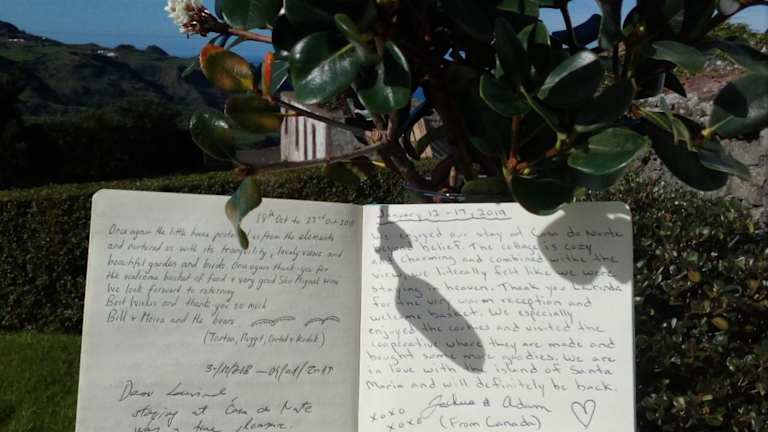 18th Oct to 23rd Oct 2018
Once again the little house protected us from the elements
and nurtured us with its tranquility, lovely views and
beautiful garden and birds. Once again thank you for
the welcome basket of food + very good São Miguel wine
We look forward to returning
Best wishes and thank you so much
Bill + Moira and the bears
31/12/2018 —
Dear
staying at Casa do Norte
was a true pleasure.
January 12-17, 2019
We enjoyed our stay at Casa do Norte
beyond belief. The cottage is cozy
and charming and combined with the
view we literally felt like we were
staying in heaven. Thank you
for the very warm reception and
welcome basket. We especially
enjoyed the cookies and visited the
cooperative where they are made and
bought some more goodies. We are
in love with the island of Santa
Maria and will definitely be back.
xoxo & Adam
xoxo (From Canada)